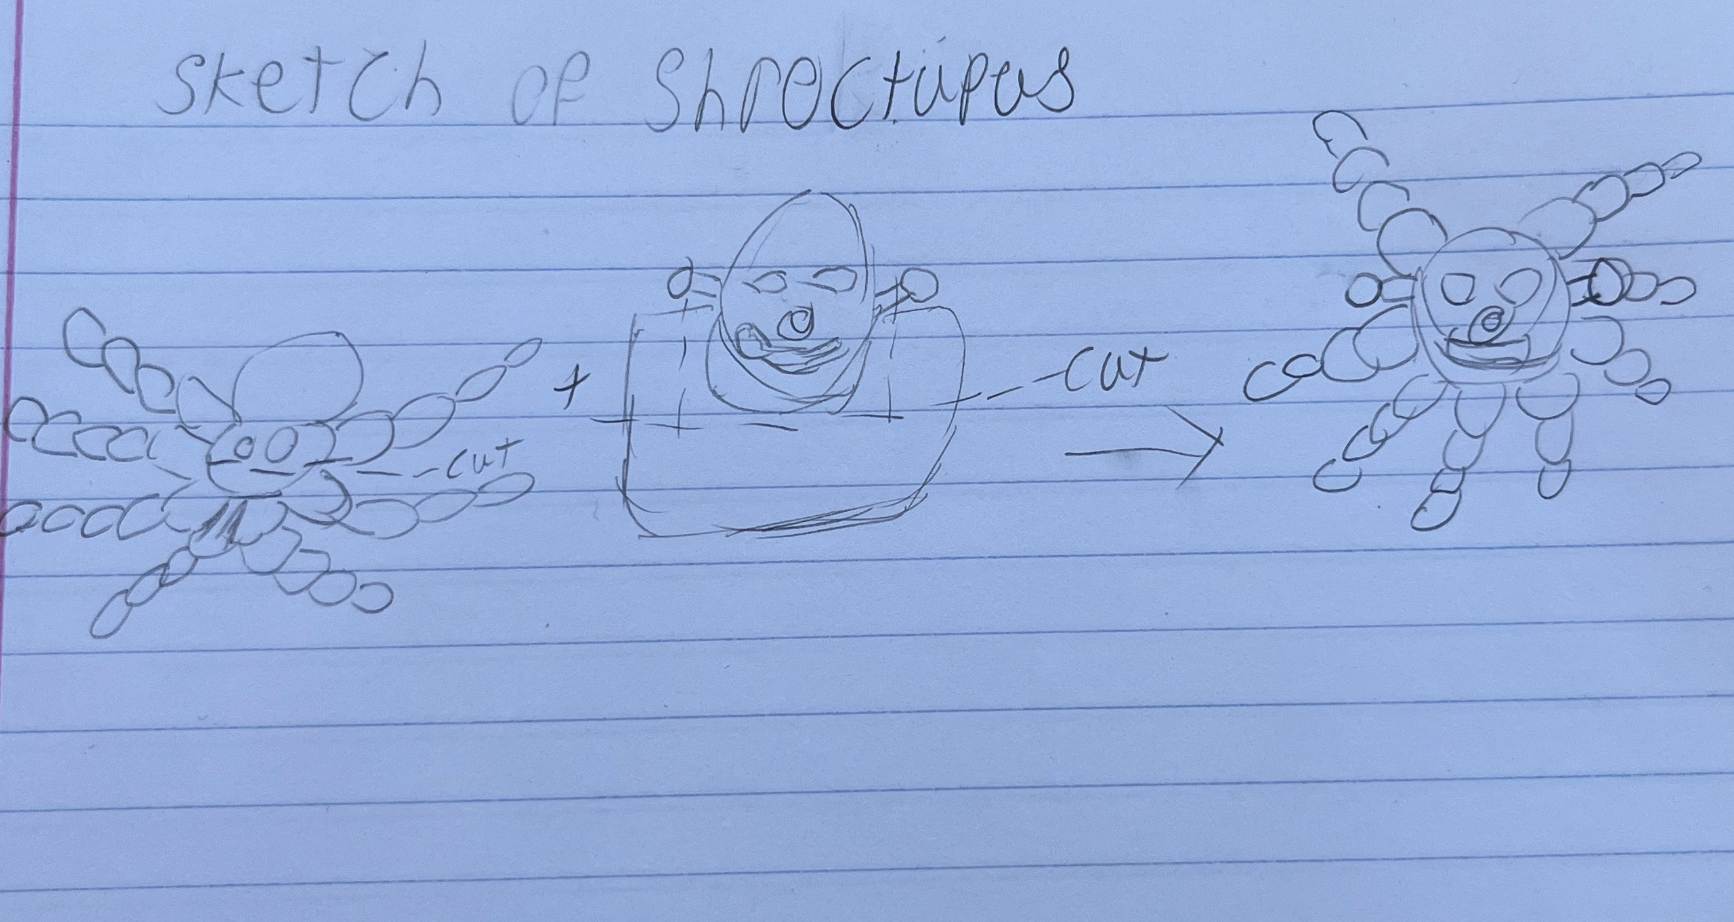 sketch of Shroctupus
+
-cut
-cut